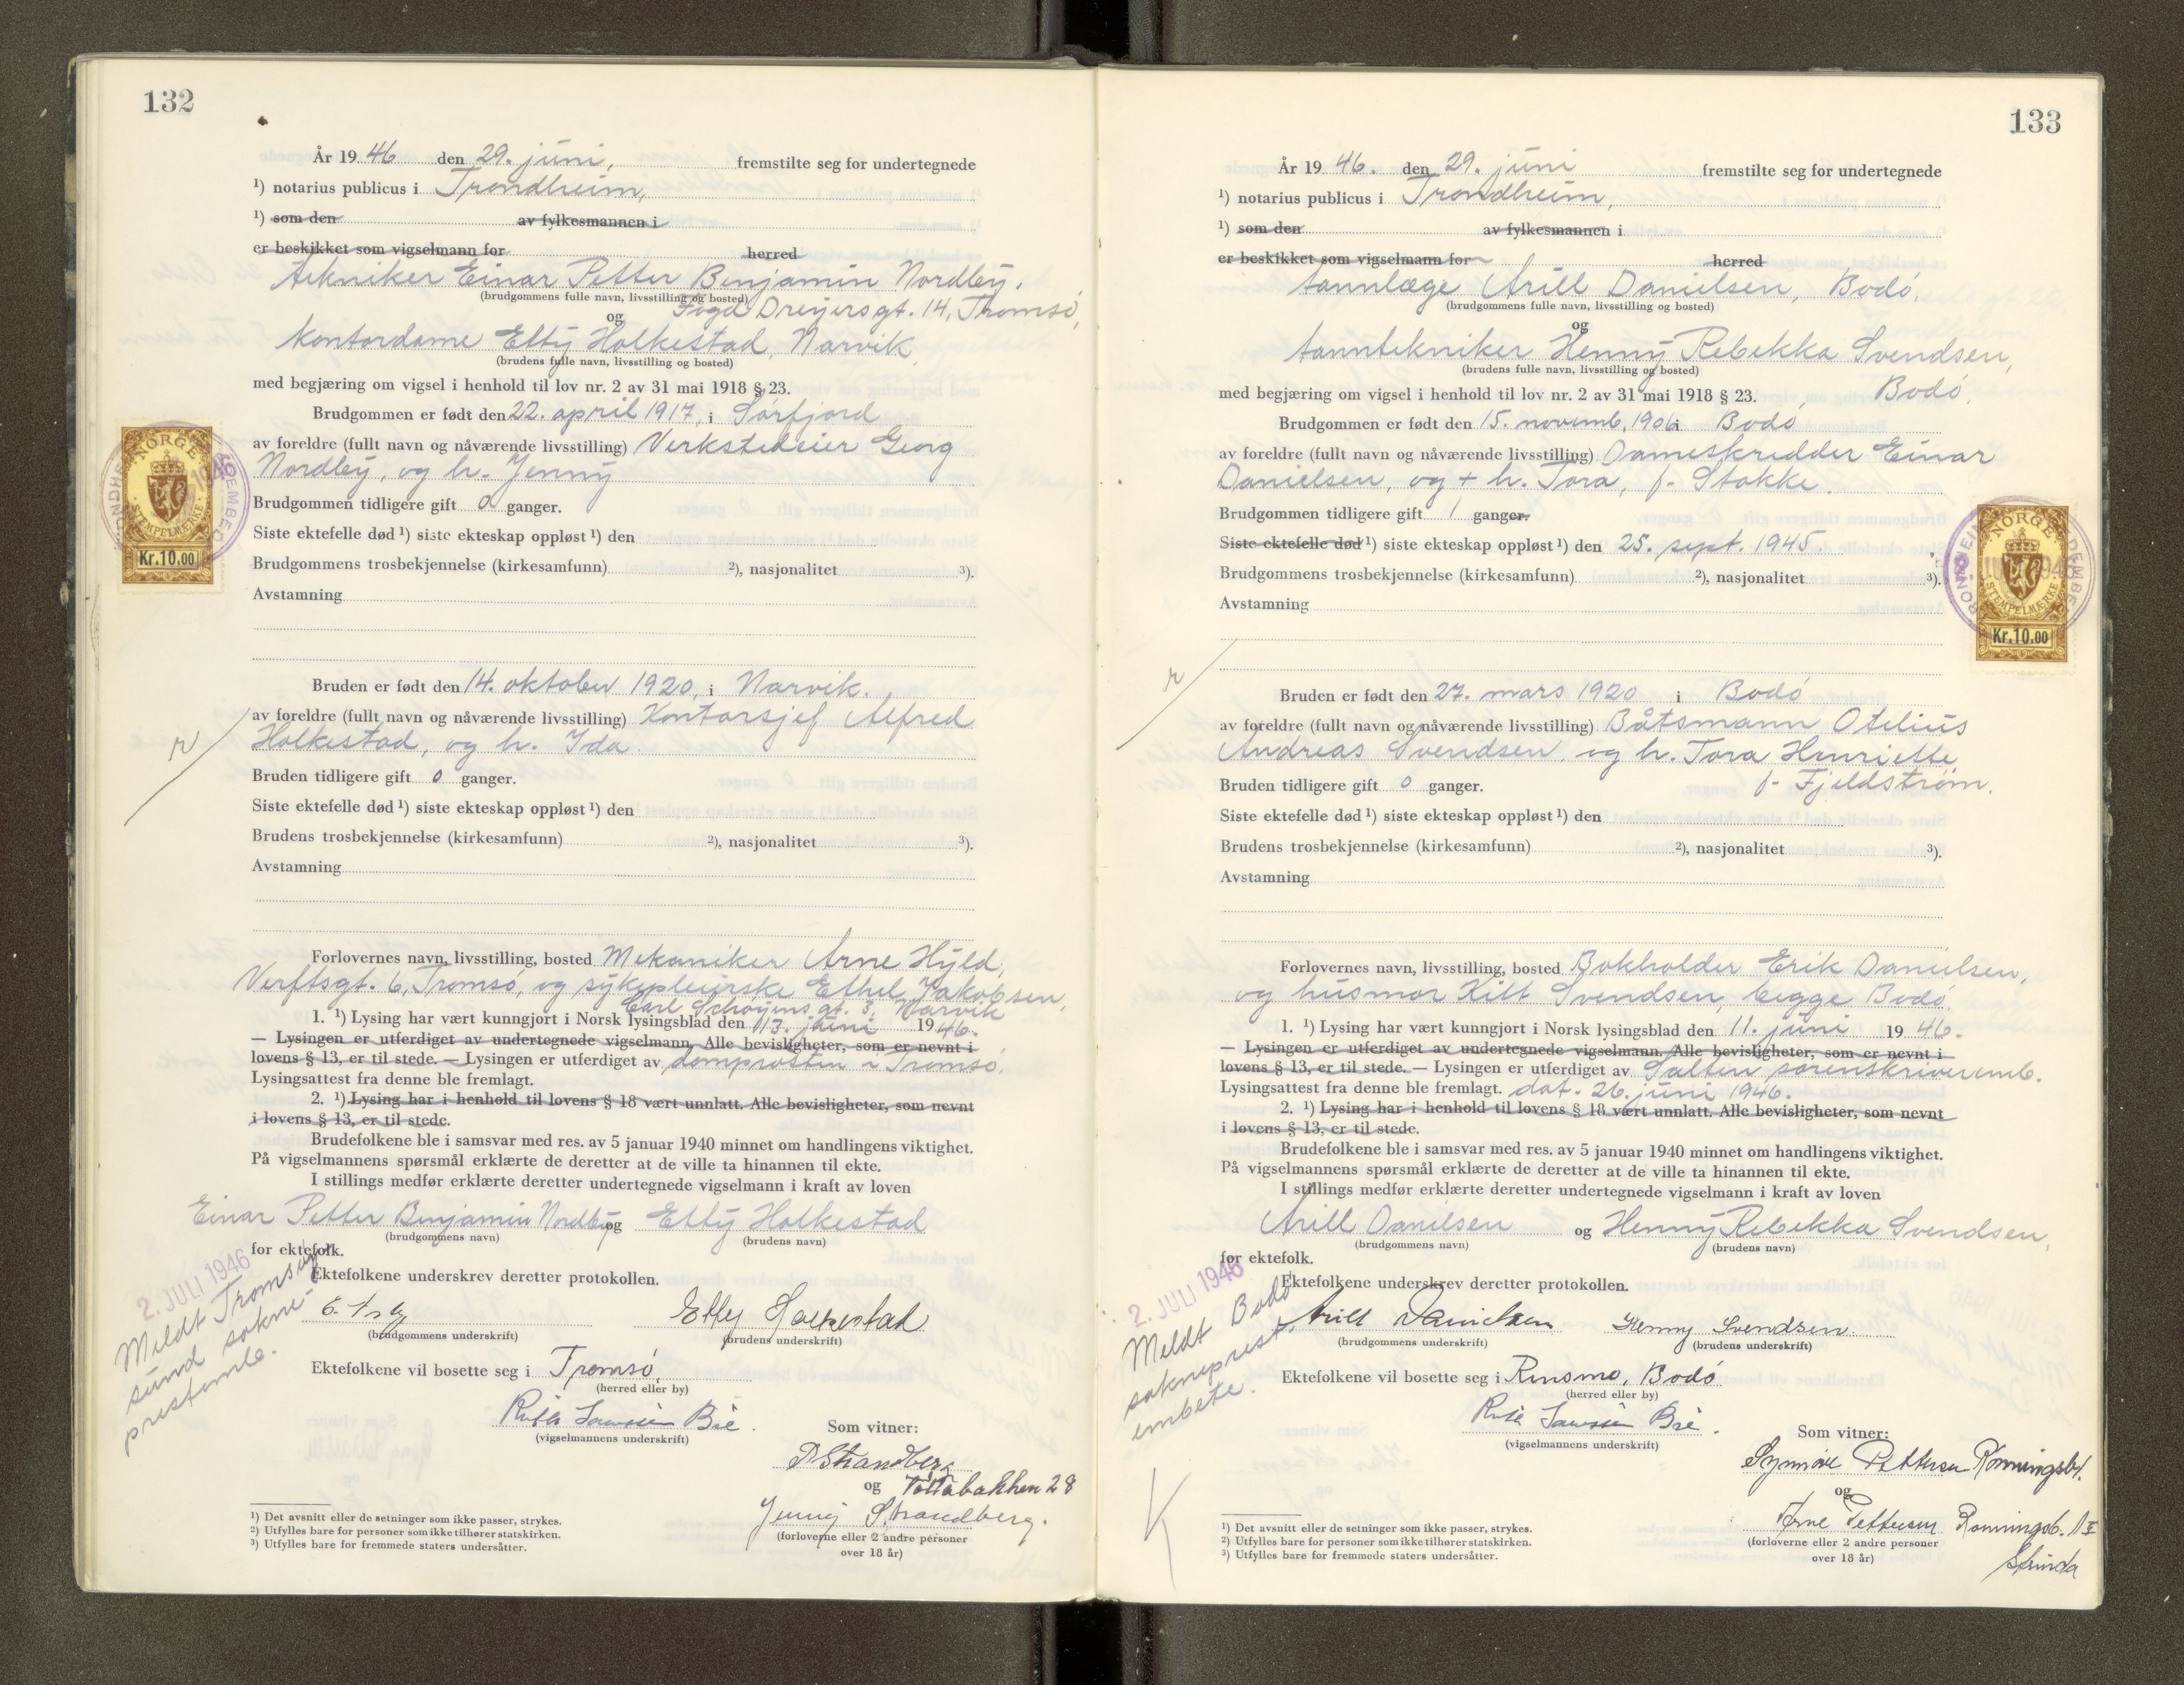 132
År 19 46 den 29. juni, fremstilte seg for undertegnede
¹) notarius publicus i Trondheim,
¹) som den av fylkesmannen i
er beskikket som vigselmann for herred
tekniker Einar Petter Benjamin Nordby,
(brudgommens fulle navn, livsstilling og bosted)
Fogd Dreyersgt. 14, Tromsö,
og
kontordame Etty Holkestad, Narvik
(brudens fulle navn, livsstilling og bosted)
med begjæring om vigsel i henhold til lov nr. 2 av 31 mai 1918 § 23.
Brudgommen er født den 22. april 1917, i Sörfjord
av foreldre (fullt navn og nåværende livsstilling) Verkstedeier Georg
Nordby, og h. Jenny
NORGE
STEMPELMÆRKE
Kr.10.00
Brudgommen tidligere gift 0 ganger.
Siste ektefelle død ¹) siste ekteskap oppløst ¹) den
Brudgommens trosbekjennelse (kirkesamfunn) ²), nasjonalitet ³).
Avstamning
Bruden er født den 14. oktober 1920, i Narvik.
av foreldre (fullt navn og nåværende livsstilling) Kontorsjef Alfred
Holkestad, og h. Ida.
r
Bruden tidligere gift 0 ganger.
Siste ektefelle død ¹) siste ekteskap oppløst ¹) den
Brudens trosbekjennelse (kirkesamfunn) ²), nasjonalitet ³).
Avstamning
Forlovernes navn, livsstilling, bosted Mekaniker Arne Hyld,
Verftsgt. 6, Tromsö, og sykepleierske Ethel Jakobsen,
Carl Schöyens gt. 3, Narvik
1. ¹) Lysing har vært kunngjort i Norsk lysingsblad den 13. juni 1946.
— Lysingen er utferdiget av undertegnede vigselmann. Alle bevisligheter, som er nevnt i
lovens § 13, er til stede. — Lysingen er utferdiget av domprosten i Tromsö.
Lysingsattest fra denne ble fremlagt.
2. ¹) Lysing har i henhold til lovens § 18 vært unnlatt. Alle bevisligheter, som nevnt
i lovens § 13, er til stede.
Brudefolkene ble i samsvar med res. av 5 januar 1940 minnet om handlingens viktighet.
På vigselmannens spørsmål erklærte de deretter at de ville ta hinannen til ekte.
I stillings medfør erklærte deretter undertegnede vigselmann i kraft av loven
Einar Petter Benjamin Nordby og Etty Holkestad
(brudgommens navn) (brudens navn)
for ektefolk.
2. JULI 1946
Meldt Tromsöy-
sund sokne-
prestemb.
Ektefolkene underskrev deretter protokollen.
Etty Holkestad
(brudgommens underskrift) (brudens underskrift)
Ektefolkene vil bosette seg i Tromsö,
(herred eller by)
Bie.
(vigselmannens underskrift)
Som vitner:
Strandberg
og
Jenny Strandberg.
(forloverne eller 2 andre personer
over 18 år)
¹) Det avsnitt eller de setninger som ikke passer, strykes.
²) Utfylles bare for personer som ikke tilhører statskirken.
³) Utfylles bare for fremmede staters undersåtter.
133
År 19 46. den 29. juni fremstilte seg for undertegnede
¹) notarius publicus i Trondheim,
¹) som den av fylkesmannen i
er beskikket som vigselmann for herred
tannlæge Arill Danielsen, Bodö,
(brudgommens fulle navn, livsstilling og bosted)
og
tanntekniker Henny Rebekka Svendsen,
(brudens fulle navn, livsstilling og bosted)
Bodö,
med begjæring om vigsel i henhold til lov nr. 2 av 31 mai 1918 § 23.
Brudgommen er født den 15. novemb. 1906 i Bodö
av foreldre (fullt navn og nåværende livsstilling) Dameskredder Einar
Danielsen, og + h. Tora, f. Stokke.
Brudgommen tidligere gift 1 ganger.
NORGE
STEMPELMÆRKE
Kr.10.00
Siste ektefelle død ¹) siste ekteskap oppløst ¹) den 25. sept. 1945.
Brudgommens trosbekjennelse (kirkesamfunn) ²), nasjonalitet ³).
Avstamning
r
Bruden er født den 27. mars 1920 i Bodö
av foreldre (fullt navn og nåværende livsstilling) Båtsmann Otelius
Andreas Svendsen, og h. Tora Henriette,
f. Fjeldström.
Bruden tidligere gift 0 ganger.
Siste ektefelle død ¹) siste ekteskap oppløst ¹) den
Brudens trosbekjennelse (kirkesamfunn) ²), nasjonalitet ³).
Avstamning
Forlovernes navn, livsstilling, bosted Bokholder Erik Danielsen,
og husmor Kitt Svendsen, begge Bodö.
1. ¹) Lysing har vært kunngjort i Norsk lysingsblad den 11. juni 19 46.
— Lysingen er utferdiget av undertegnede vigselmann. Alle bevisligheter, som er nevnt i
lovens § 13, er til stede. — Lysingen er utferdiget av Salten sorenskriveremb.
Lysingsattest fra denne ble fremlagt. dat. 26. juni 1946.
2. ¹) Lysing har i henhold til lovens § 18 vært unnlatt. Alle bevisligheter, som nevnt
i lovens § 13, er til stede.
Brudefolkene ble i samsvar med res. av 5 januar 1940 minnet om handlingens viktighet.
På vigselmannens spørsmål erklærte de deretter at de ville ta hinannen til ekte.
I stillings medfør erklærte deretter undertegnede vigselmann i kraft av loven
Arill Danielsen og Henny Rebekka Svendsen,
(brudgommens navn) (brudens navn)
for ektefolk.
2. JULI 1946
Meldt Bodö
sokneprest-
embete.
Ektefolkene underskrev deretter protokollen.
Arill Danielsen Henny Svendsen.
(brudgommens underskrift) (brudens underskrift)
Ektefolkene vil bosette seg i Rensmo, Bodö
(herred eller by)
Bie.
(vigselmannens underskrift)
Som vitner:
Synnöve Pettersen Ronningsb.
og
Arne Pettersen Ronningsb.
(forloverne eller 2 andre personer
over 18 år)
Strinda
K
¹) Det avsnitt eller de setninger som ikke passer, strykes.
²) Utfylles bare for personer som ikke tilhører statskirken.
³) Utfylles bare for fremmede staters undersåtter.